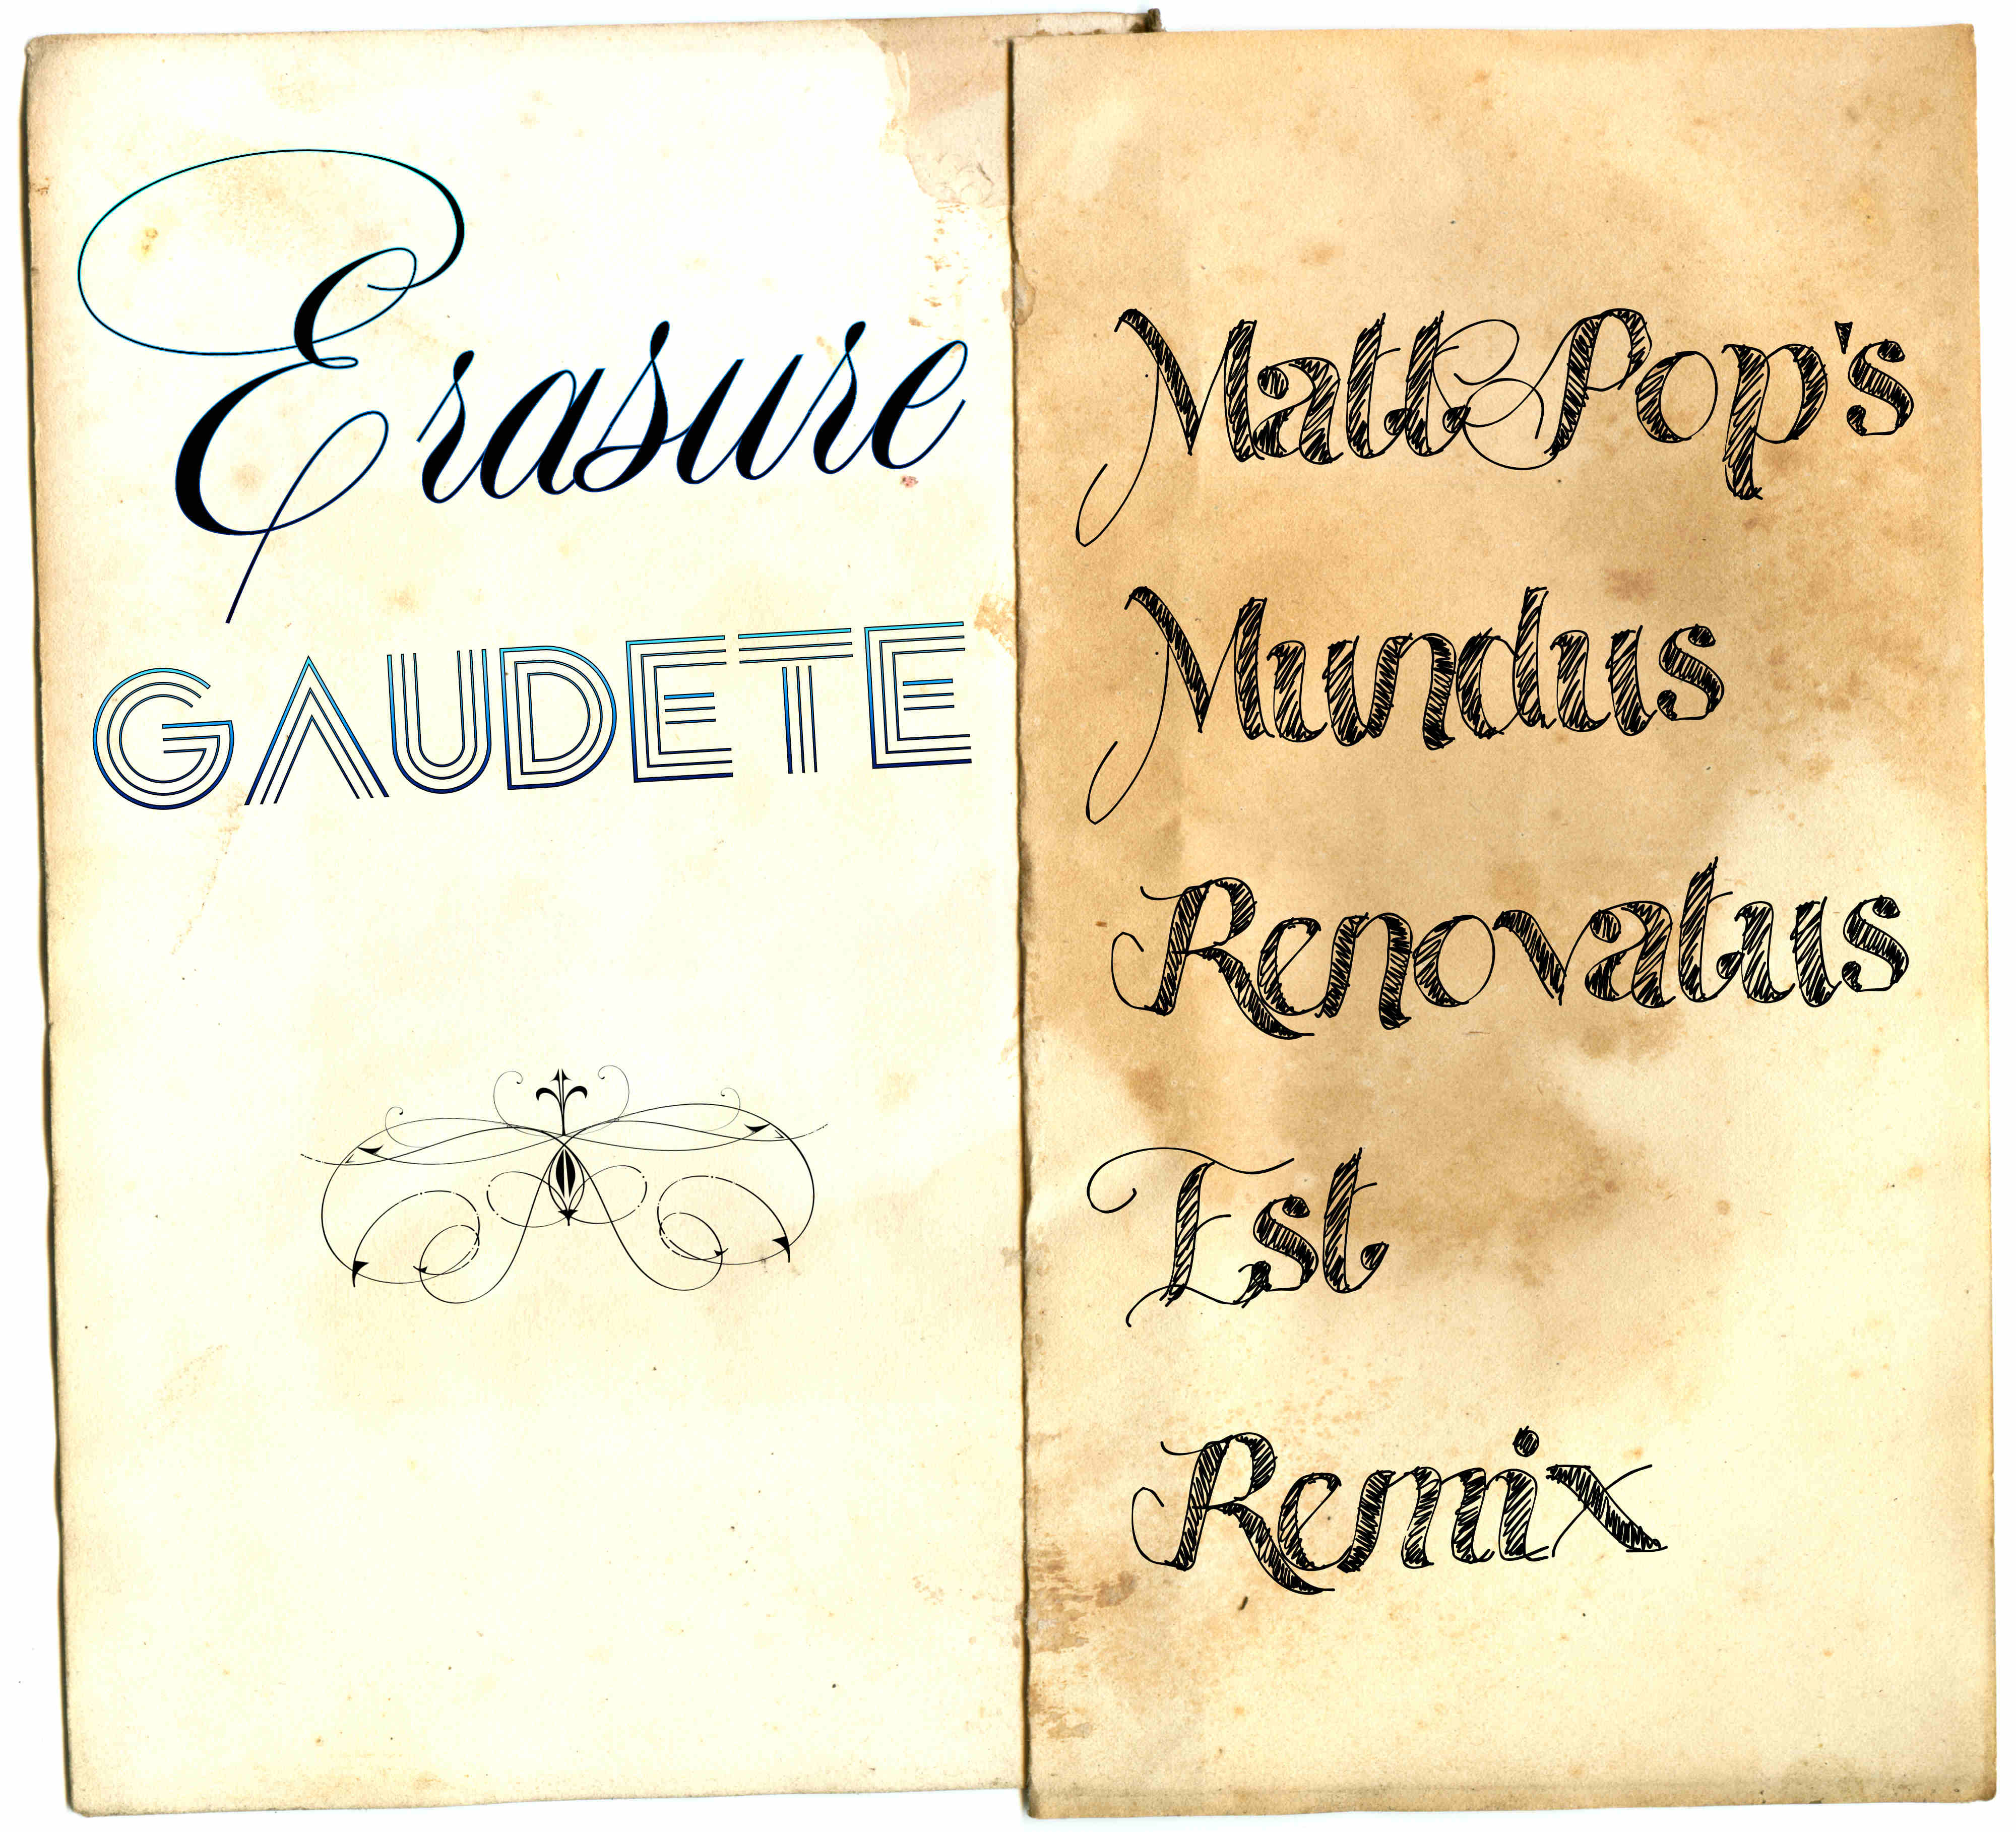 Erasure
GAUDETE
Matt Pop's
Mundus
Renovatus
Est
Remix